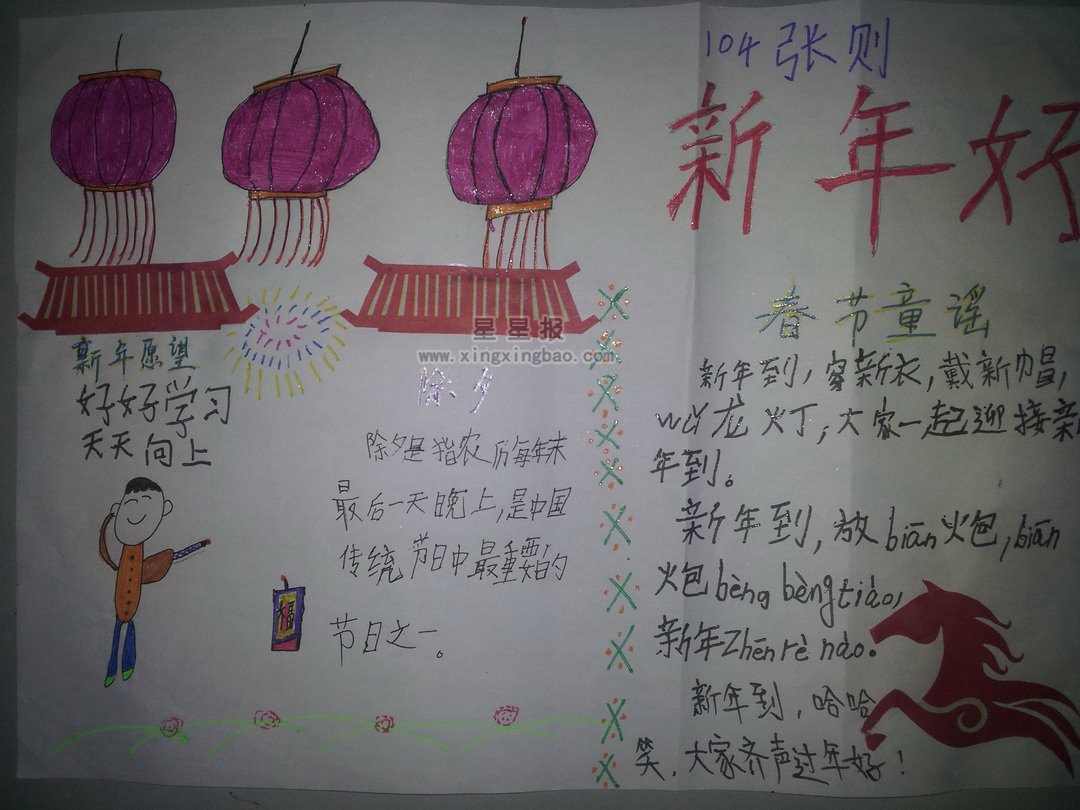 104 张则
新年好
新年愿望
好好学习
天天向上
星星报
www.xingxingbao.com
除夕
除夕是指农历每年末
最后一天晚上,是中国
传统节日中最重要的
节日之一。
福
春节童谣
新年到,穿新衣,戴新帽,
wǔ龙火丁,大家一起迎接新
年到。
新年到,放biān火包,biān
火包bèng bèng tiào,
新年Zhēn rè nào。
新年到,哈哈
笑,大家齐声过年好!